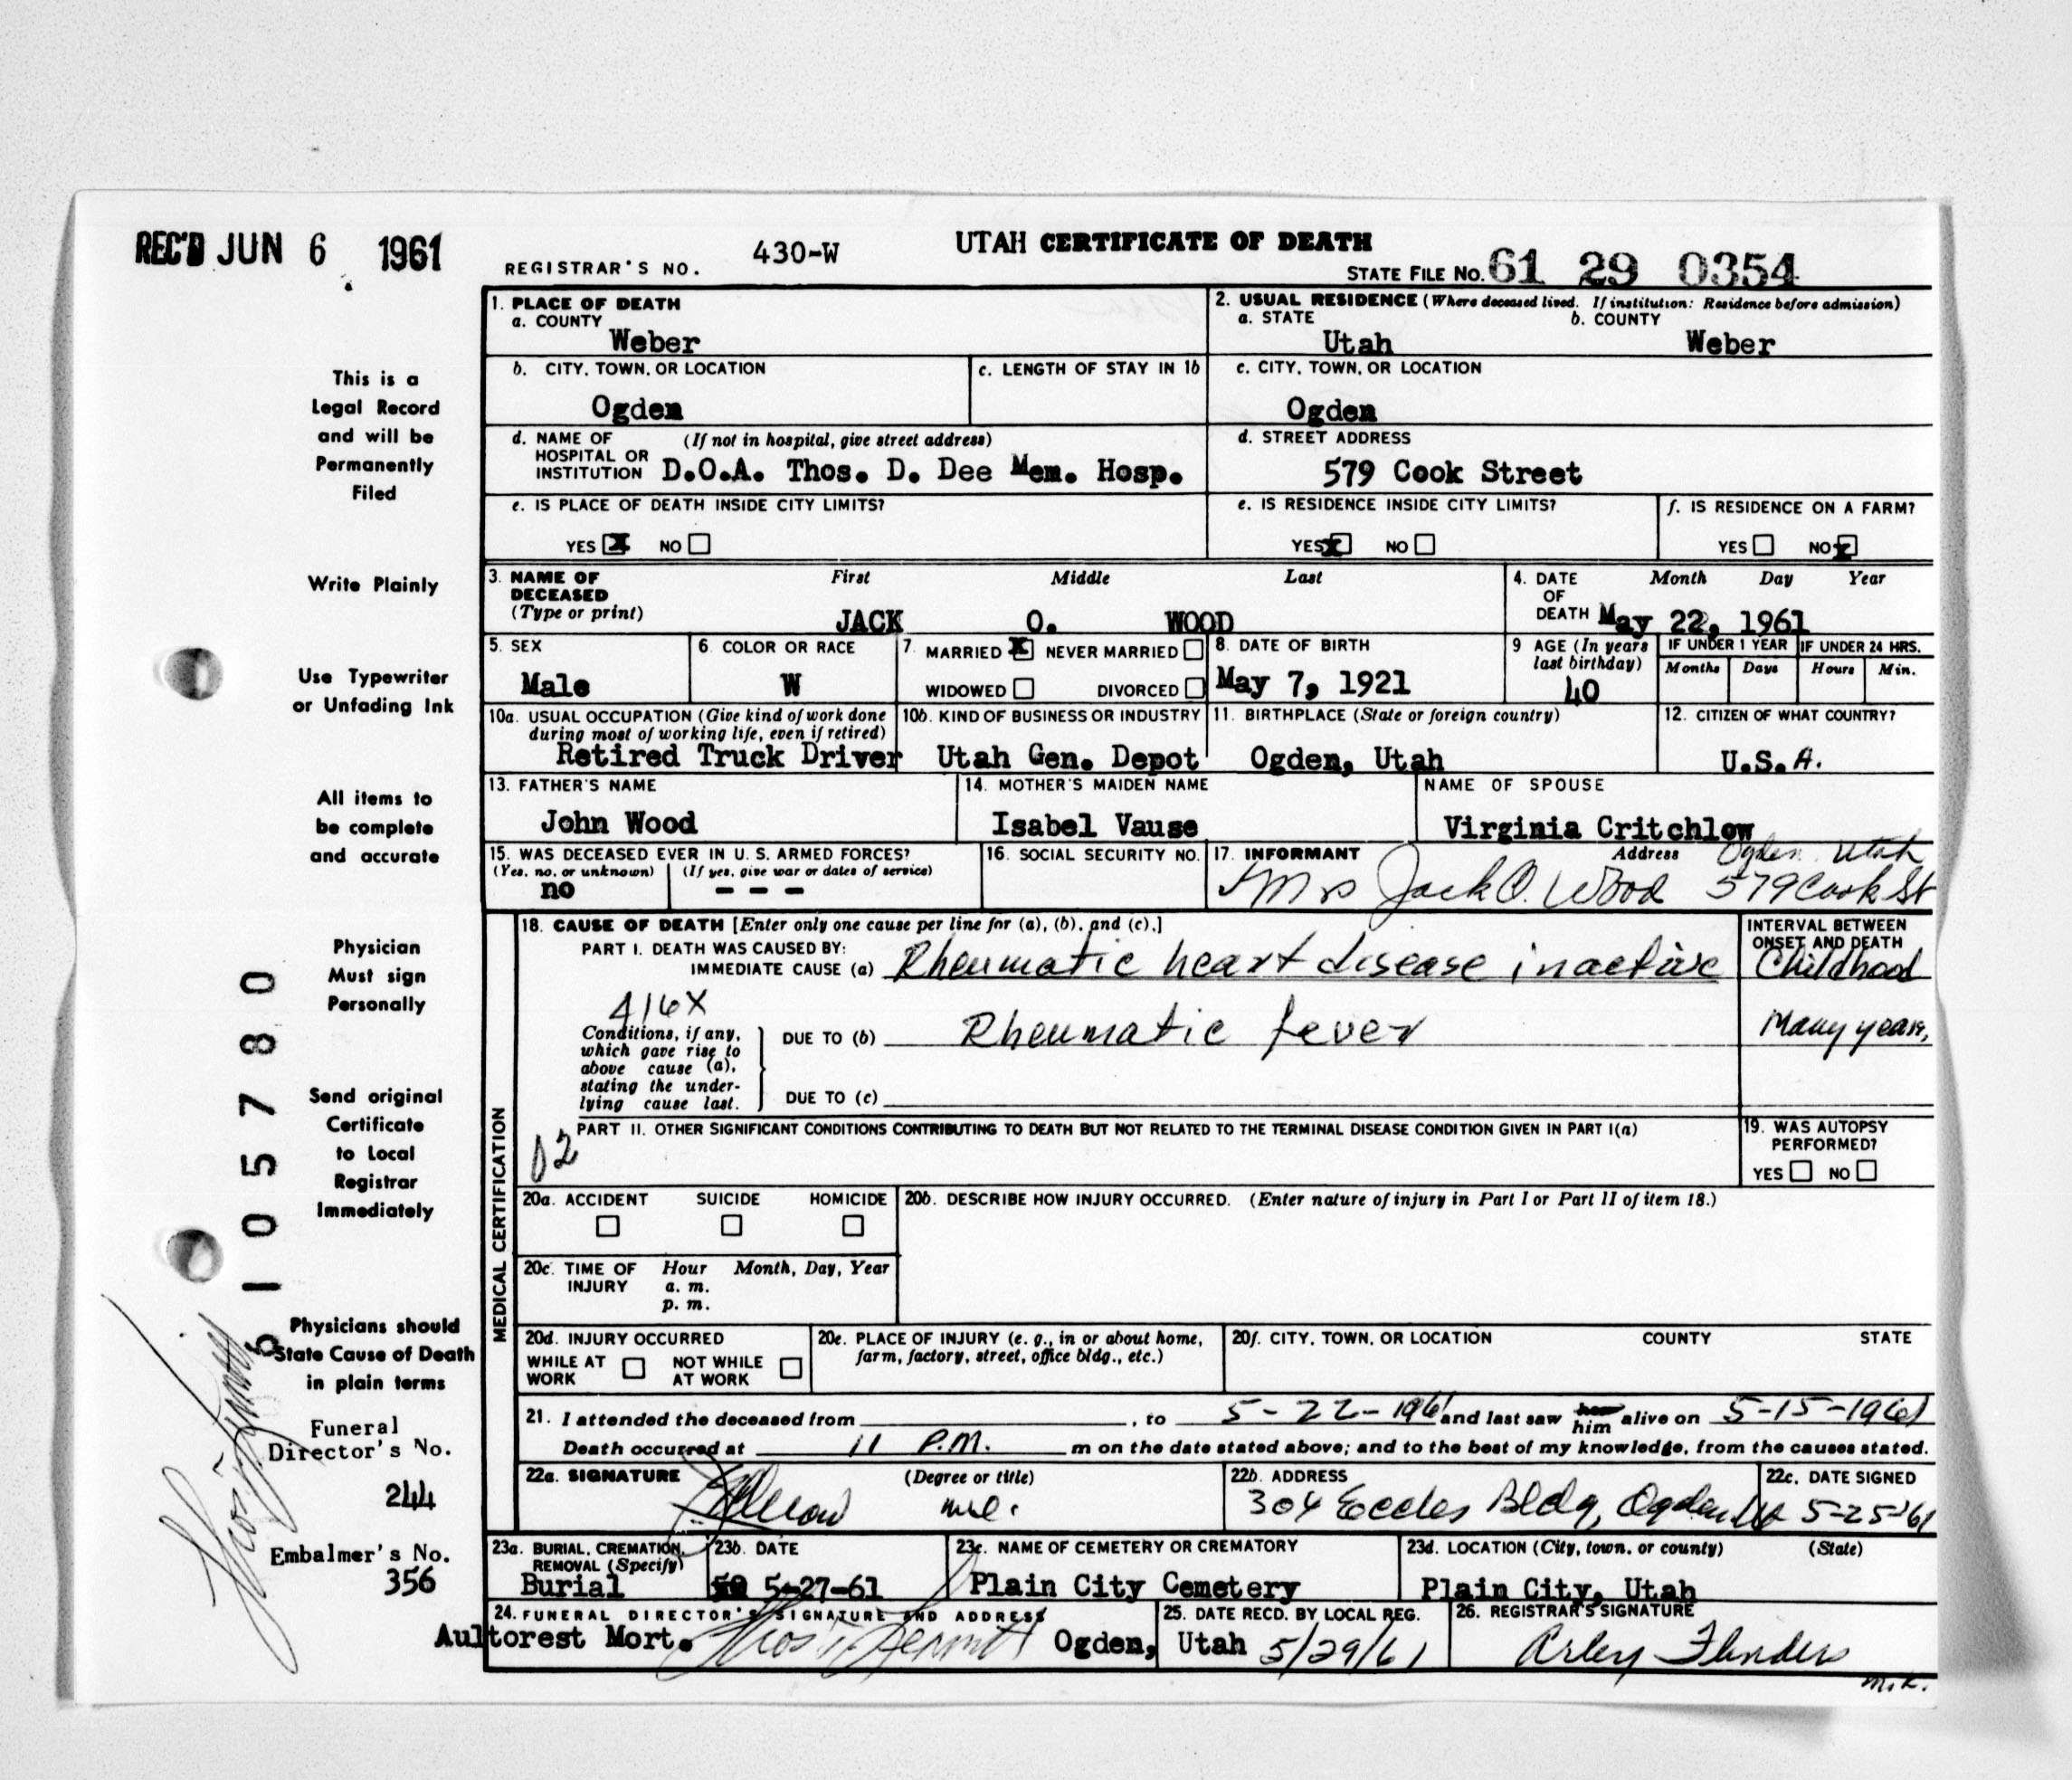 REC'D JUN 6 1961
REGISTRAR'S NO. 430-W
UTAH CERTIFICATE OF DEATH
STATE FILE NO. 61 29 0354
This is a
Legal Record
and will be
Permanently
Filed
Write Plainly
Use Typewriter
or Unfading Ink
All items to
be complete
and accurate
Physician
Must sign
Personally
Send original
Certificate
to Local
Registrar
Immediately
Physicians should
State Cause of Death
in plain terms
Funeral
Director's No.
244
Embalmer's No.
356
1. PLACE OF DEATH
a. COUNTY
Weber
2. USUAL RESIDENCE (Where deceased lived. If institution: Residence before admission)
a. STATE b. COUNTY
Utah Weber
b. CITY, TOWN, OR LOCATION
Ogden
c. LENGTH OF STAY IN 1b
c. CITY, TOWN, OR LOCATION
Ogden
d. NAME OF (If not in hospital, give street address)
HOSPITAL OR
INSTITUTION D.O.A. Thos. D. Dee Mem. Hosp.
d. STREET ADDRESS
579 Cook Street
e. IS PLACE OF DEATH INSIDE CITY LIMITS?
YES X NO
e. IS RESIDENCE INSIDE CITY LIMITS?
YES X NO
f. IS RESIDENCE ON A FARM?
YES NO X
3. NAME OF First Middle Last
DECEASED
(Type or print) JACK O. WOOD
4. DATE Month Day Year
OF
DEATH May 22, 1961
5. SEX
Male
6. COLOR OR RACE
W
7. MARRIED X NEVER MARRIED
WIDOWED DIVORCED
8. DATE OF BIRTH
May 7, 1921
9 AGE (In years
last birthday)
40
IF UNDER 1 YEAR
Months Days
IF UNDER 24 HRS.
Hours Min.
10a. USUAL OCCUPATION (Give kind of work done
during most of working life, even if retired)
Retired Truck Driver
10b. KIND OF BUSINESS OR INDUSTRY
Utah Gen. Depot
11. BIRTHPLACE (State or foreign country)
Ogden, Utah
12. CITIZEN OF WHAT COUNTRY?
U.S.A.
13. FATHER'S NAME
John Wood
14. MOTHER'S MAIDEN NAME
Isabel Vause
NAME OF SPOUSE
Virginia Critchlow
15. WAS DECEASED EVER IN U. S. ARMED FORCES?
(Yes, no, or unknown) (If yes, give war or dates of service)
no - - -
16. SOCIAL SECURITY NO.
17. INFORMANT Address Ogden Utah
Mrs Jack O. Wood 579 Cook St
MEDICAL CERTIFICATION
18. CAUSE OF DEATH [Enter only one cause per line for (a), (b), and (c).]
PART I. DEATH WAS CAUSED BY:
IMMEDIATE CAUSE (a) Rheumatic heart disease inactive
INTERVAL BETWEEN
ONSET AND DEATH
Childhood
416X
Conditions, if any,
which gave rise to
above cause (a),
stating the under-
lying cause last.
DUE TO (b) Rheumatic fever
Many years,
DUE TO (c)
PART II. OTHER SIGNIFICANT CONDITIONS CONTRIBUTING TO DEATH BUT NOT RELATED TO THE TERMINAL DISEASE CONDITION GIVEN IN PART I(a)
19. WAS AUTOPSY
PERFORMED?
YES NO
20a. ACCIDENT SUICIDE HOMICIDE
20b. DESCRIBE HOW INJURY OCCURRED. (Enter nature of injury in Part I or Part II of item 18.)
20c. TIME OF Hour Month, Day, Year
INJURY a. m.
p. m.
20d. INJURY OCCURRED
WHILE AT NOT WHILE
WORK AT WORK
20e. PLACE OF INJURY (e. g., in or about home,
farm, factory, street, office bldg., etc.)
20f. CITY, TOWN, OR LOCATION COUNTY STATE
21. I attended the deceased from , to 5-22-1961 and last saw her him alive on 5-15-1961
Death occurred at 11 P.M. m on the date stated above; and to the best of my knowledge, from the causes stated.
22a. SIGNATURE (Degree or title)
22b. ADDRESS
304 Eccles Bldg, Ogden Ut
22c. DATE SIGNED
5-25-61
23a. BURIAL, CREMATION,
REMOVAL (Specify)
Burial
23b. DATE
5-27-61
23c. NAME OF CEMETERY OR CREMATORY
Plain City Cemetery
23d. LOCATION (City, town, or county) (State)
Plain City, Utah
24. FUNERAL DIRECTOR'S SIGNATURE AND ADDRESS
Aultorest Mort. Ogden, Utah
25. DATE RECD. BY LOCAL REG.
5/29/61
26. REGISTRAR'S SIGNATURE
Arley Flinders
6 1 0 5 7 8 0